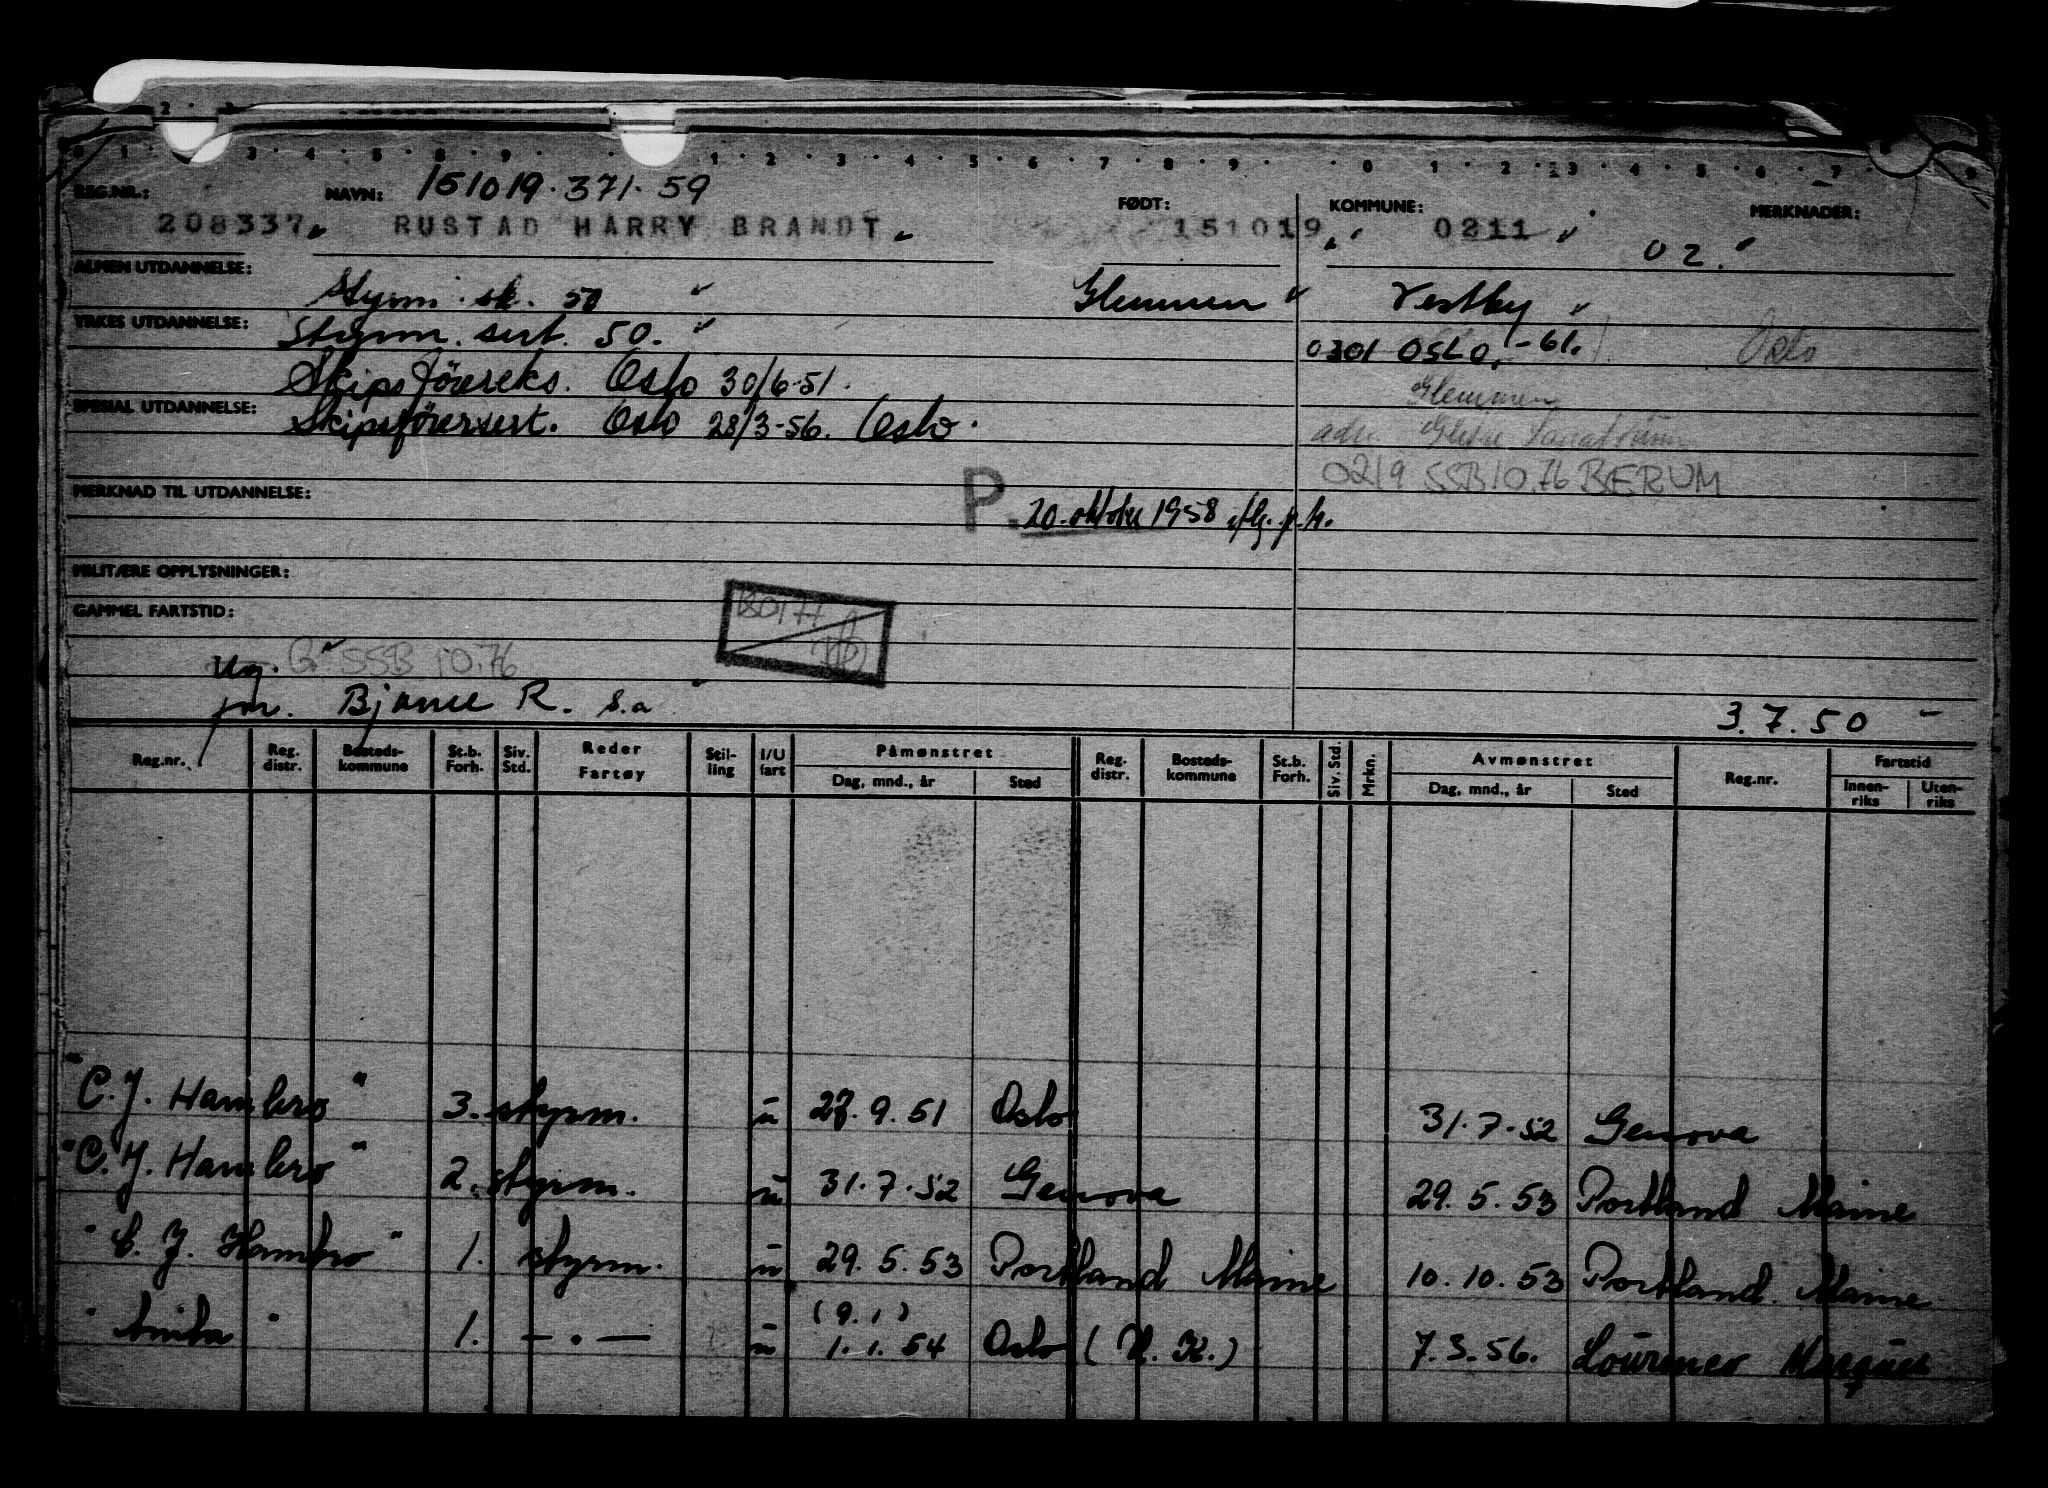 2 · 3
0 1 · 3 · 4 · 5 · 8 · 9 · · 1 · 2 · 3 · 4 · 5 · 6 · 7 · 8 · 9 · · 0 1 · 2 · 3 · 4 · 5 · 6 · 7 · 9
REG.NR.: NAVN: 151019·371·59 FØDT: KOMMUNE: MERKNADER:
208337 RUSTAD HARRY BRANDT 151019 0211 02.
ALMEN UTDANNELSE:
Styrm. sk. 50 Glemmen Vestby
YRKES UTDANNELSE: Styrm. sert. 50. 0301 OSLO, -61. Oslo
Skipsførereks. Oslo 30/6-51. Glemmen
SPESIAL UTDANNELSE: Skipsførersert. Oslo 28/3-56. Oslo. adr. Glitre Sanatorium
0219 SSB 10.76 BÆRUM
MERKNAD TIL UTDANNELSE: P. 20. oktober 1958
MILITÆRE OPPLYSNINGER:
GAMMEL FARTSTID:
Ug. G. SSB 10.76
fm. Bjarne R. s.a 3.7.50
Reg.nr. Reg. distr. Bosteds-kommune St.b. Forh. Siv. Std. Reder Fartøy Stil-ling I/U fart Påmønstret Dag, mnd., år Sted Reg. distr. Bosteds-kommune St.b. Forh. Siv. Std. Mrkn. Avmønstret Dag, mnd., år Sted Reg.nr. Fartstid Innen-riks Uten-riks
"C.J. Hambro" 3. styrm. u 27.9.51 Oslo 31.7.52 Genova
"C.J. Hambro" 2. styrm. u 31.7.52 Genova 29.5.53 Portland Maine
"C.J. Hambro" 1. styrm. u 29.5.53 Portland Maine 10.10.53 Portland. Maine
(9.1)
"Anita" 1. —·— u 1.1.54 Oslo (H.K.) 7.3.56. Lourenco Marques